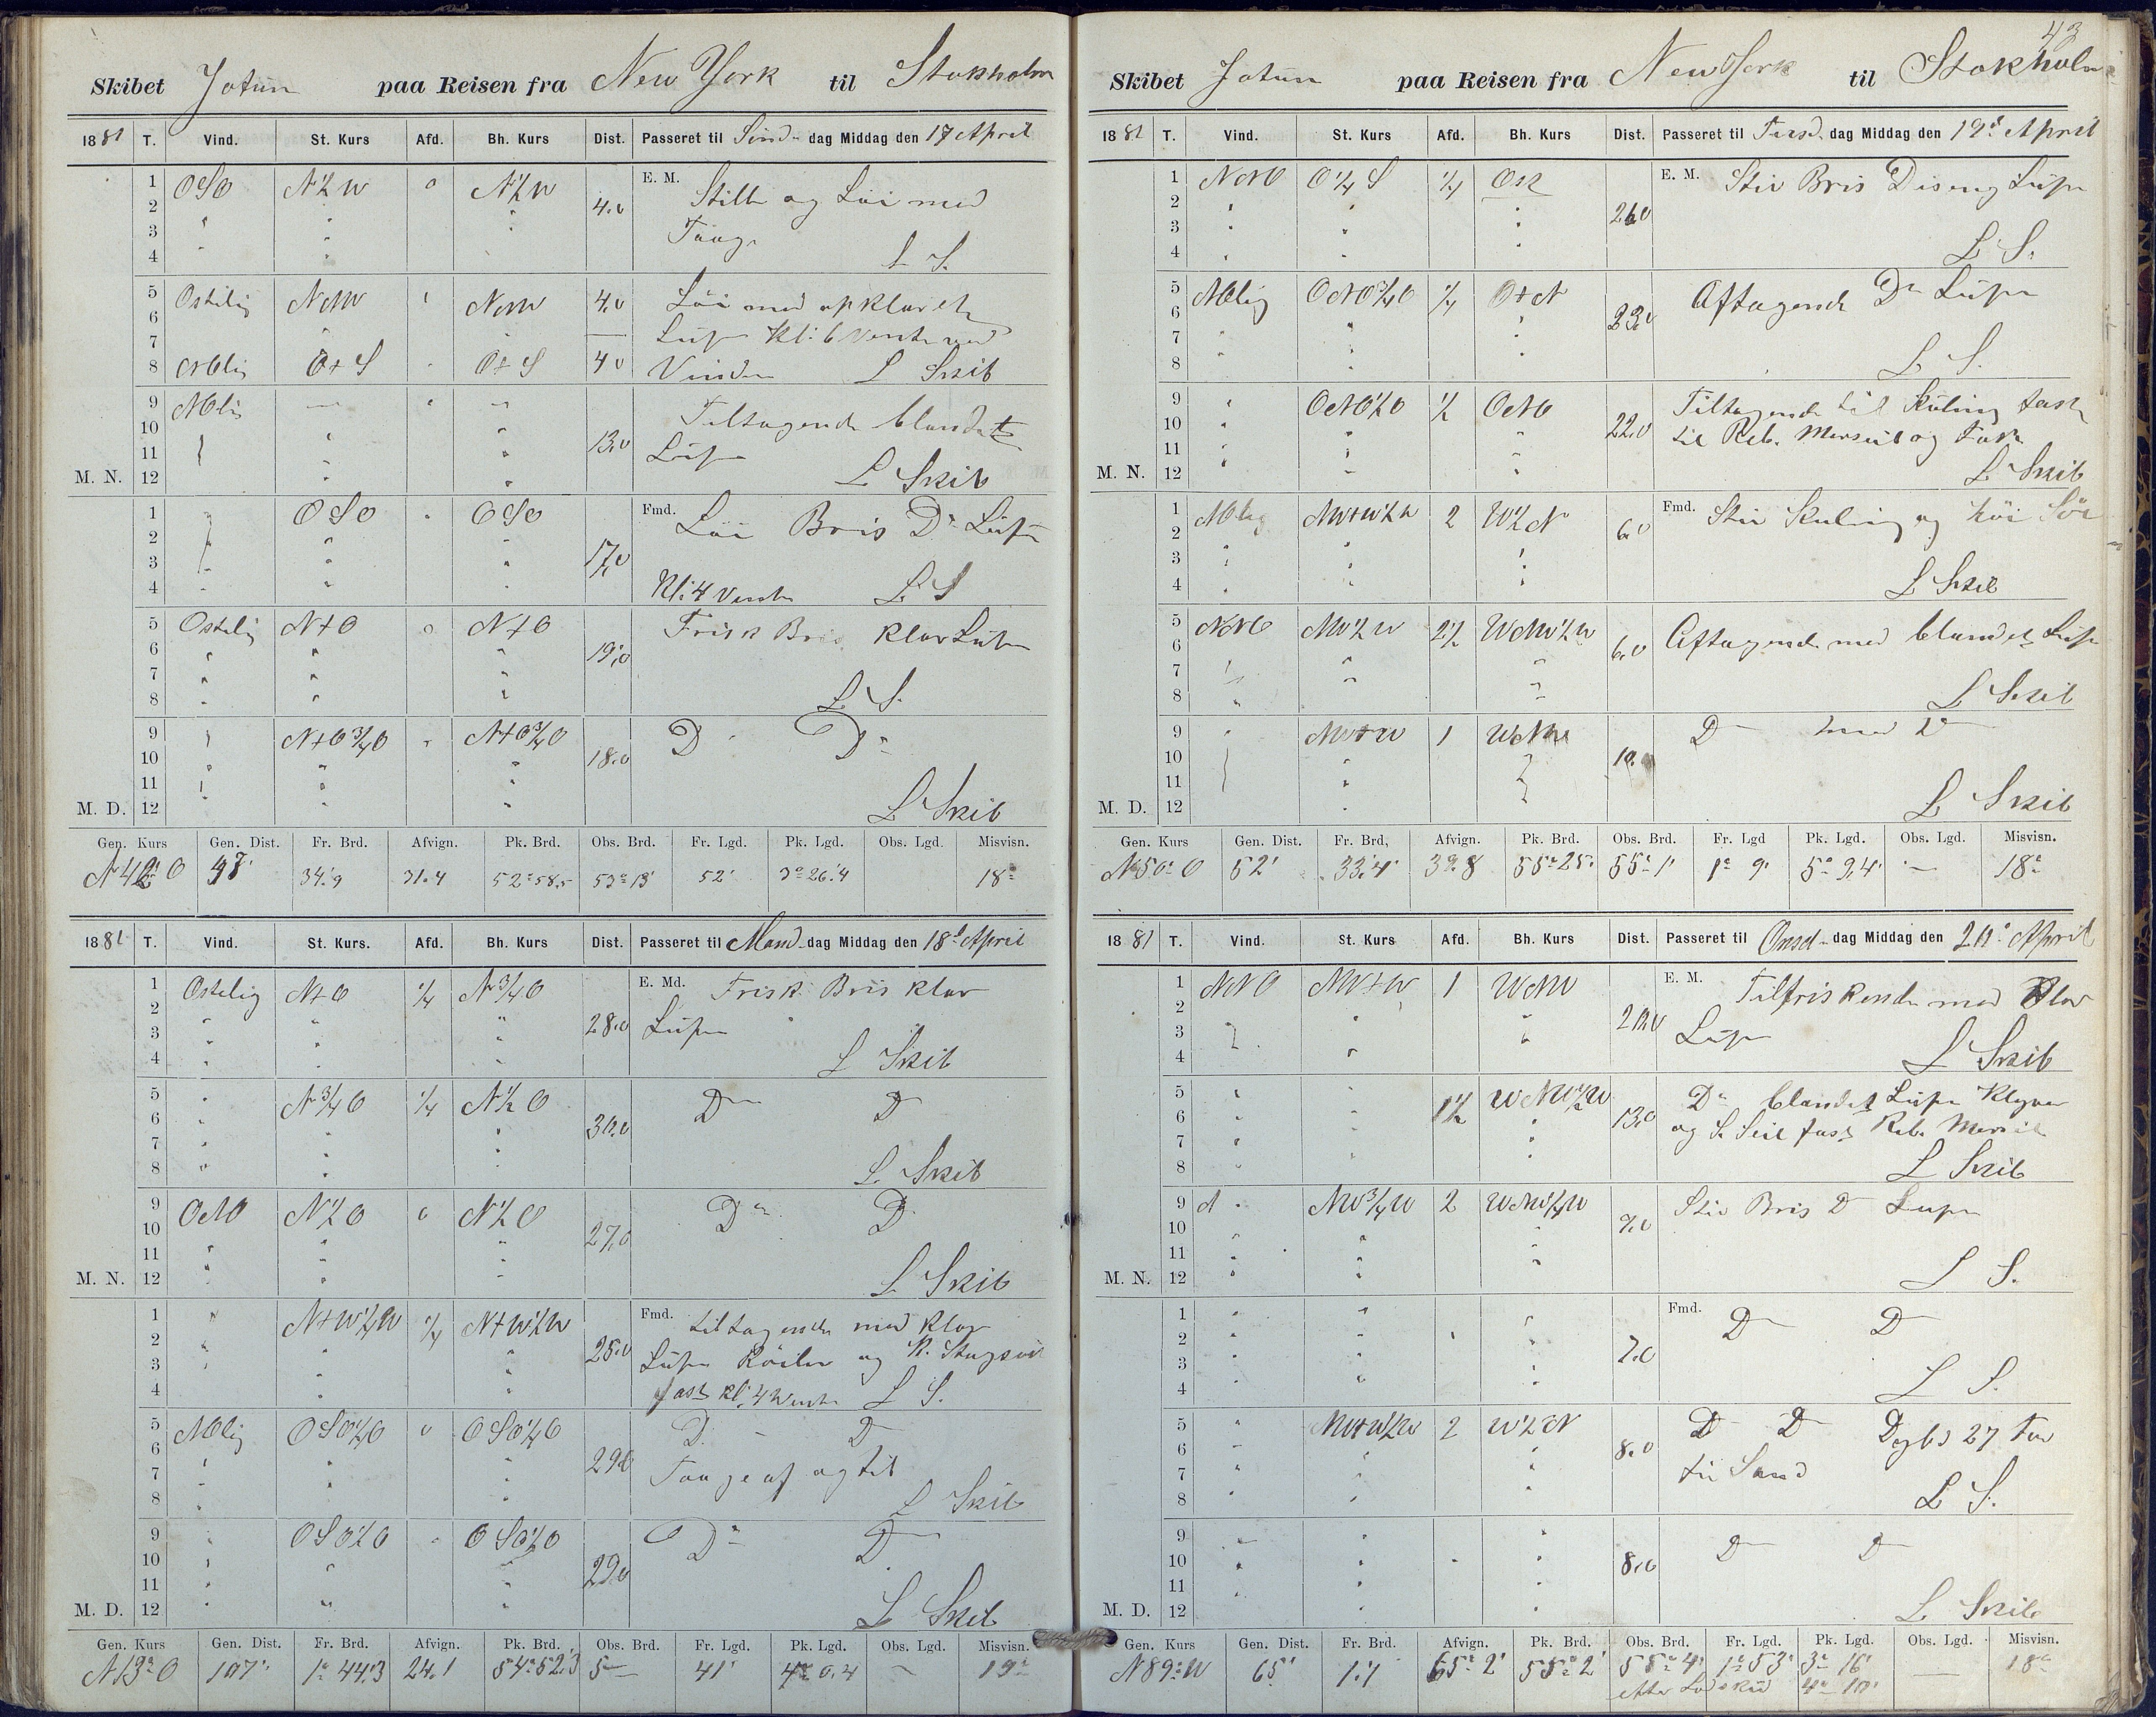 Skibet Jotun paa Reisen fra New York til Stokholm
1881 T. Vind. St. Kurs Afd. Bh. Kurs Dist. Passeret til Sönd- dag Middag den 17 April
1 OSO N½W 0 N½W E. M. Stille og Löi med
2 4.0
3 Taage
4 L S.
5 Ostelig NNW NNW 4.0 Löi med opklaret
6
7 Luft Kl: 6 Vendte med
8 NOlig O+S O+S 4 0 Vinden L Skib
9 NOlig
10 Tiltagende blandet
11 13.0 Luft
M. N. 12 L Skib
1 OSO OSO Fmd. Löi Bris Do Luft
2
3 17.0
4 Kl: 4 Vendte L S
5 Ostelig N+O 0 N+O Frisk Bris klar Luft
6 19.0
7
8 L. S.
9 N+O¾O N+O¾O D Do
10 18.0
11
M. D. 12 L Skib
Gen. Kurs Gen. Dist. Fr. Brd. Afvign. Pk. Brd. Obs. Brd. Fr. Lgd. Pk. Lgd. Obs. Lgd. Misvisn.
N42°O 47' 34.'9 31.4 52°58.5 53°13' 52' 3°26.'4 18°
1881 T. Vind. St. Kurs. Afd. Bh. Kurs Dist. Passeret til Mand- dag Middag den 18d April
1 Ostelig N+O ¼ N¾O E. Md. Frisk Bris klar
2
3 28.0 Luft
4 L Skib
5 N¾O ¼ N½O Do D
6 30.0
7
8 L. Skib
9 ONO N½O 0 N½O Do D
10
11 27.0
M. N. 12 L Skib
1 N+W½W ¼ N+W½W Fmd. tiltagende med klar
2 25.0
3 Luft Röiler og St. Stagseil
4 fast kl: 4 Vendte L S.
5 NOlig OSO½O 0 OSO½O D. D
6 29.0
7 Taage af og til
8 L Skib
9 OSO½O OSO½O Do D
10
11 29.0
M. D. 12 L Skib
Gen. Kurs Gen. Dist. Fr. Brd. Afvign. Pk. Brd. Obs. Brd. Fr. Lgd. Pk. Lgd. Obs. Lgd. Misvisn.
N13°O 107' 1°44.'3 24.1 54°52.'3 5— 41' 4°0.4 — 19°
43
Skibet Jotun paa Reisen fra New York til Stokholm
1881 T. Vind. St. Kurs Afd. Bh. Kurs Dist. Passeret til Tirsd- dag Middag den 19d April
1 NNO O¼S ¼ Ost E. M. Stiv Bris Diseng Luft
2 26.0
3
4 L S.
5 NOlig ONO¾O ¼ O+N Aftagende Do Luft
6 23.0
7
8 L S.
9 ONO½O ½ ONO Tiltagende til Kuling fast
10 22.0 til Reb. Merseil og Fok
11
M. N. 12 L Skib
1 NOlig NW+W½W 2 W½N Fmd. Stiv Kuling og höi Sö
2 6.0
3
4 L Skib
5 NNO NW½W 2½ WNW½W Aftagende med blandet Luft
6 6.0
7
8 L Skib
9 NW+W 1 WNW D— med D—
10 10.0
11
M. D. 12 L Skib
Gen. Kurs Gen. Dist. Fr. Brd, Afvign. Pk. Brd. Obs. Brd. Fr. Lgd Pk. Lgd. Obs. Lgd. Misvisn.
N50°O 52' 33.'4' 39.8 55°25' 55°1' 1°9' 5°9,4' — 18°
1881 T. Vind. St. Kurs Afd. Bh. Kurs Dist. Passeret til Onsd- dag Middag den 20d April
1 NNO NW+W 1 WNW E. M. Tilfriskende med klar
2
3 20.0 Luft
4 L Skib
5 1½ WNW½W Do blandet Luft Klyver
6 13.0 og S. Seil fast Reb. Merseil
7
8 L Skib
9 NW¾W 2 WNW¼W Stiv Bris D— Luft
10 9.0
11
M. N. 12 L S.
1 Fmd. D— D—
2
3 7.0
4 L S.
5 NW+W½W 2 W½N D— D— Dybd 27 Fav
6 8.0
7 fin Sand
8 L S.
9 D— D—
10 8.0
11
M. D. 12 L Skib
Gen. Kurs Gen. Dist. Fr. Brd. Afvign. Pk. Brd. Obs. Brd. Fr. Lgd. Pk. Lgd. Obs. Lgd. Misvisn.
N89°W 65' 1.'1 65°2' 55°2' 55°4' 1°53' 3°16' — 18°
efter Lodskud 4°10'